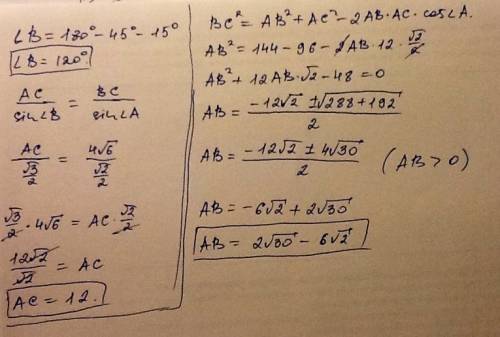 ∠B = 180° - 45° - 15°
∠B = 120°.
AC/sin∠B = BC/sin∠A
AC/(√3/2) = 4√6/(√2/2)
√3/2 · 4√6 = AC · √2/2
12√2/√2 = AC
AC = 12.
BC² = AB² + AC² - 2AB · AC · cos∠A.
AB² = 144 - 96 - 2AB · 12 · √2/2
AB² + 12AB · √2 - 48 = 0
AB = (-12√2 ± √(288 + 192))/2
AB = (-12√2 ± 4√30)/2 (AB > 0)
AB = -6√2 + 2√30
AB = 2√30 - 6√2